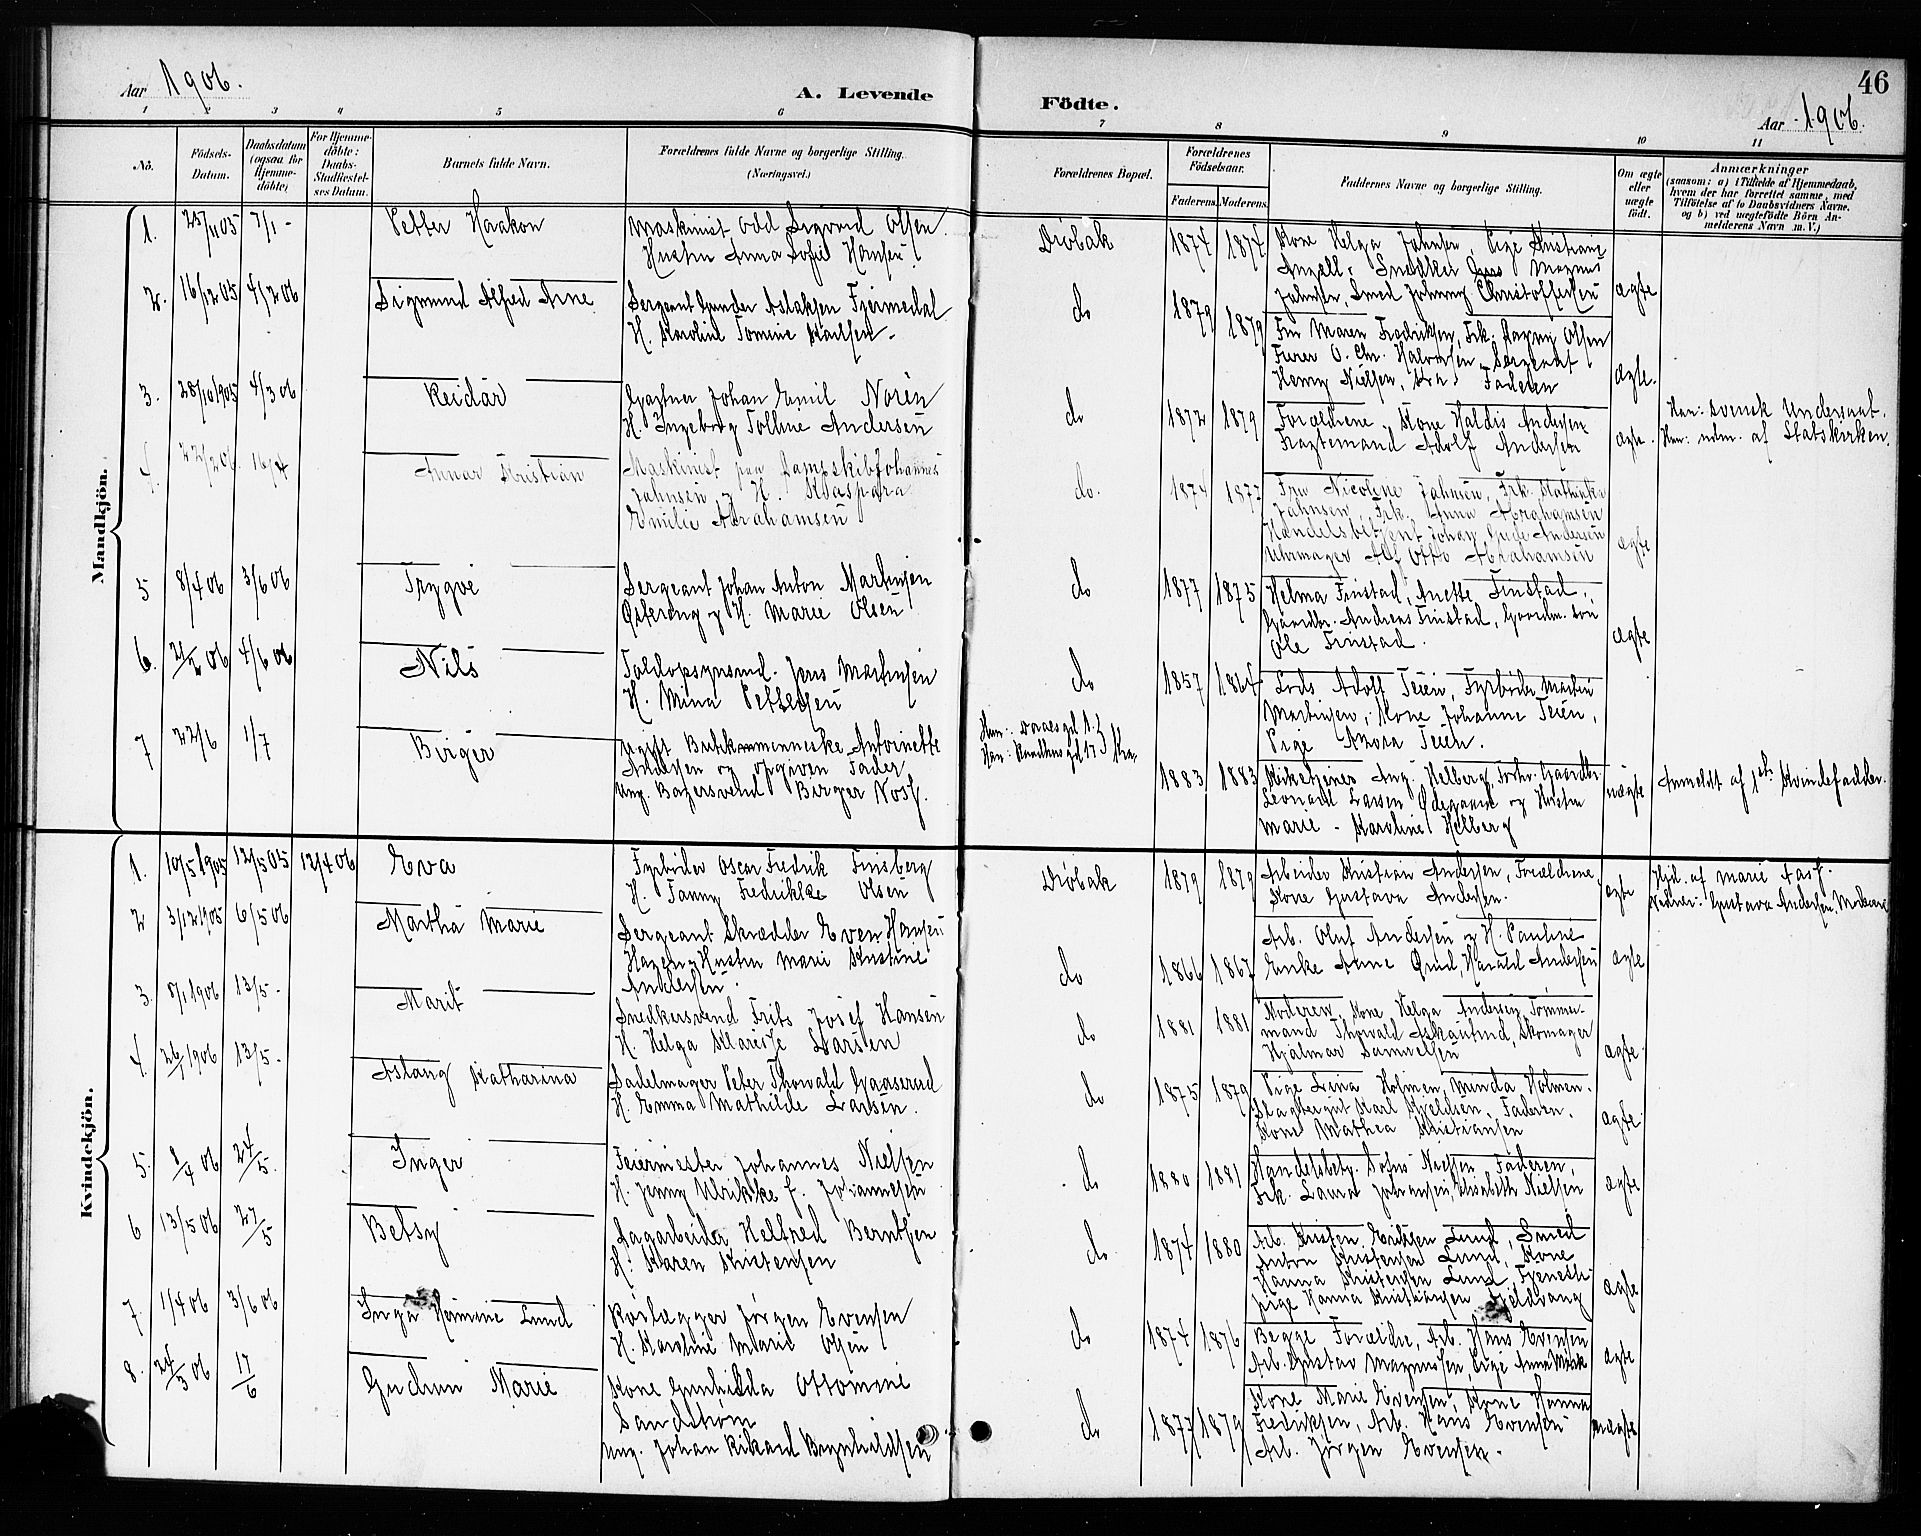 Aar 1906.
A. Levende
Födte.
46
Aar 1906.
1 2 3 4 5 6 7 8 9 10 11
No.
Födsels-Datum.
Daabsdatum (ogsaa for Hjemme-döbte)
For Hjemme-döbte: Daabs-Stadfæstel-ses Datum.
Barnets fulde Navn.
Forældrenes fulde Navne og borgerlige Stilling. (Næringsvei.)
Forældrenes Bopæl.
Forældrenes Födselsaar.
Faderens. Moderens.
Faddernes Navne og borgerlige Stilling.
Om ægte eller uægte födt.
Anmærkninger
(saasom: a) i Tilfælde af Hjemmedaab,
hvem der har forrettet samme, med
Tilföielse af to Daabsvidners Navne,
og b) ved uægtefödte Börn An-
melderens Navn m. V.)
Mandkjön.
1. 25/11 05 7/1 - Petter Haakon
Maskinist Odd Sigvord Olsen.
Hustru Anna Sofie Hansen
Drøbak 1874 1874
Kone Helga Jahnsen, Pige Kristiane
Angell. Snedker Jens Magnus
Jahnsen, Smed Johnny Christoffersen
ægte
2. 16/12 05 4/2 06 Sigmund Alfred Arne
Sergeant Gunder Aslaksen Fjermedal
H. Karoline Tomine Karlsen -
do 1879 1879
Fru Maren Fredriksen, Frk. Ragny Olsen
Furer O. Chr. Halvorsen, Sergeant
Henry Nielsen, Kra. Faderen
ægte.
3. 28/10 1905 4/3 06 Reidar
Gartner Johan Emil Norén
H. Ingeborg Tolline Andersen
do 1872 1879
Forældrene. Kone Haldis Andersen
Fragtemand Adolf Andersen
ægte.
Han: svensk Undersaat.
Hun: udm. af Statskirken.
4. 22/2 06 16/4 Annar Kristian
Maskinist paa Dampskib Johannes
Jahnsen og H. Kaspara
Emilie Abrahamsen
do. 1874 1877
Fru Nicoline Jahnsen, Frk. Mathinka
Jahnsen, Frk. Anna Abrahamsen
Handelsbetjent Johan Gude Andersen
Uhrmager Alf Otto Abrahamsen
ægte
5 8/4 06 3/6 06 Trygve
Sergeant Johan Anton Martinsen
Østereng og H. Marie Olsen
do 1877 1875
Helma Finstad, Anette Finstad,
Gaardbr. Andreas Finstad, Gaardm. søn
Ole Finstad.
ægte
6. 21/2 06 4/6 06 Nils
Toldopsynsmd. Jens Martinsen
H. Mina Pettersen
do 1857 1864
Lods Adolf Teien, Fyrbøder Martin
Martinsen, Kone Johanne Teien,
Pige Thora Teien.
7 22/6 1/7 Birger
Ugift Butikmenneske Antoinette
Andersen og opgiven Fader
Ung. Bagersvend Birger Vosf.
1883 1883
Leonard Larsen Ødegaard og Hustru
Marie - Karoline Helberg
uægte
Anmeldt af 1ste Kvindefadder.
Kvindekjön.
1. 10/5 1905 12/5 05 12/4 06 Eva
Fyrbøder Oscar Fredrik Finsberg
H. Fanny Fredrikke Olsen
Drøbak 1879 1879
Arbeider Kristian Andersen, Forældrene,
Kone Gustava Andersen.
ægte
Hjd. af Marie Aasf.
Vidner: Gustava Andersen, Moderen
2 3/12 1905 6/5 06 Martha Marie
Sergeant Skrædder Even Hansen
Hagen og Hustru Marie Kristine
Andersen.
do 1866 1867
Arb. Oluf Andersen og H. Pauline
Enke Anne Qvid, Harald Andersen
ægte
3. 8/1 1906 13/5 - Marit
Snedkersvend Frits Josef Hansen
H. Helga Marie Larsen
do 1881 1881
Moderen, Kone Helga Andersen, Tømmer-
mand Thorvald Askautrud, Skomager
Hjalmar Samuelsen
ægte
4. 26/1 1906 13/5 - Aslaug Katharina
Sadelmager Peter Thorvald Gaaserud
H. Emma Mathilde Larsen.
do 1875 1879
Pige Lina Holmen, Minda Holmen.
Slagtergut Karl Kjeldsen, Faderen.
Kone Mathea Kristiansen
ægte
5. 8/4 06 24/5. Inger
Feiermester Johannes Nielsen
H. Jenny Ulrikke f. Johannesen
do 1880 1881
Handelsbetj. Sofus Nielsen, Faderen,
Frk. Laura Johansen, Elisabeth Nielsen
ægte
6 13/5 06 27/5 Betsy
Sagarbeider Helfred Berntsen
H. Karen Kristensen
do 1874 1880
Arb. Kristen Eriksen Lund, Smed
Anton Kristensen Lund, Kone
Hanna Kristensen Lund, Tjeneste-
pige Hanna Kristiansen Gjeldvang
ægte
7. 1/4 06 3/6 06 Inga Hermine Lund
Rørlægger Jørgen Evensen
H. Karoline Marie Olsen
do 1874 1876
Begge Forældre, Arb. Hans Evensen
Arb. Gustav Magnussen, Pige Anna Mørk
ægte
8. 24/3 06 17/6 Gudrun Marie
Kone Gunhilda Ottomine
Sandstrøm
Ung. Johan Rikard Brynhildsen
do 1877 1879
Kone Marie Evensen, Kone Hanna
Fredriksen, Arb. Hans Evensen
Arb. Jørgen Evensen.
uægte